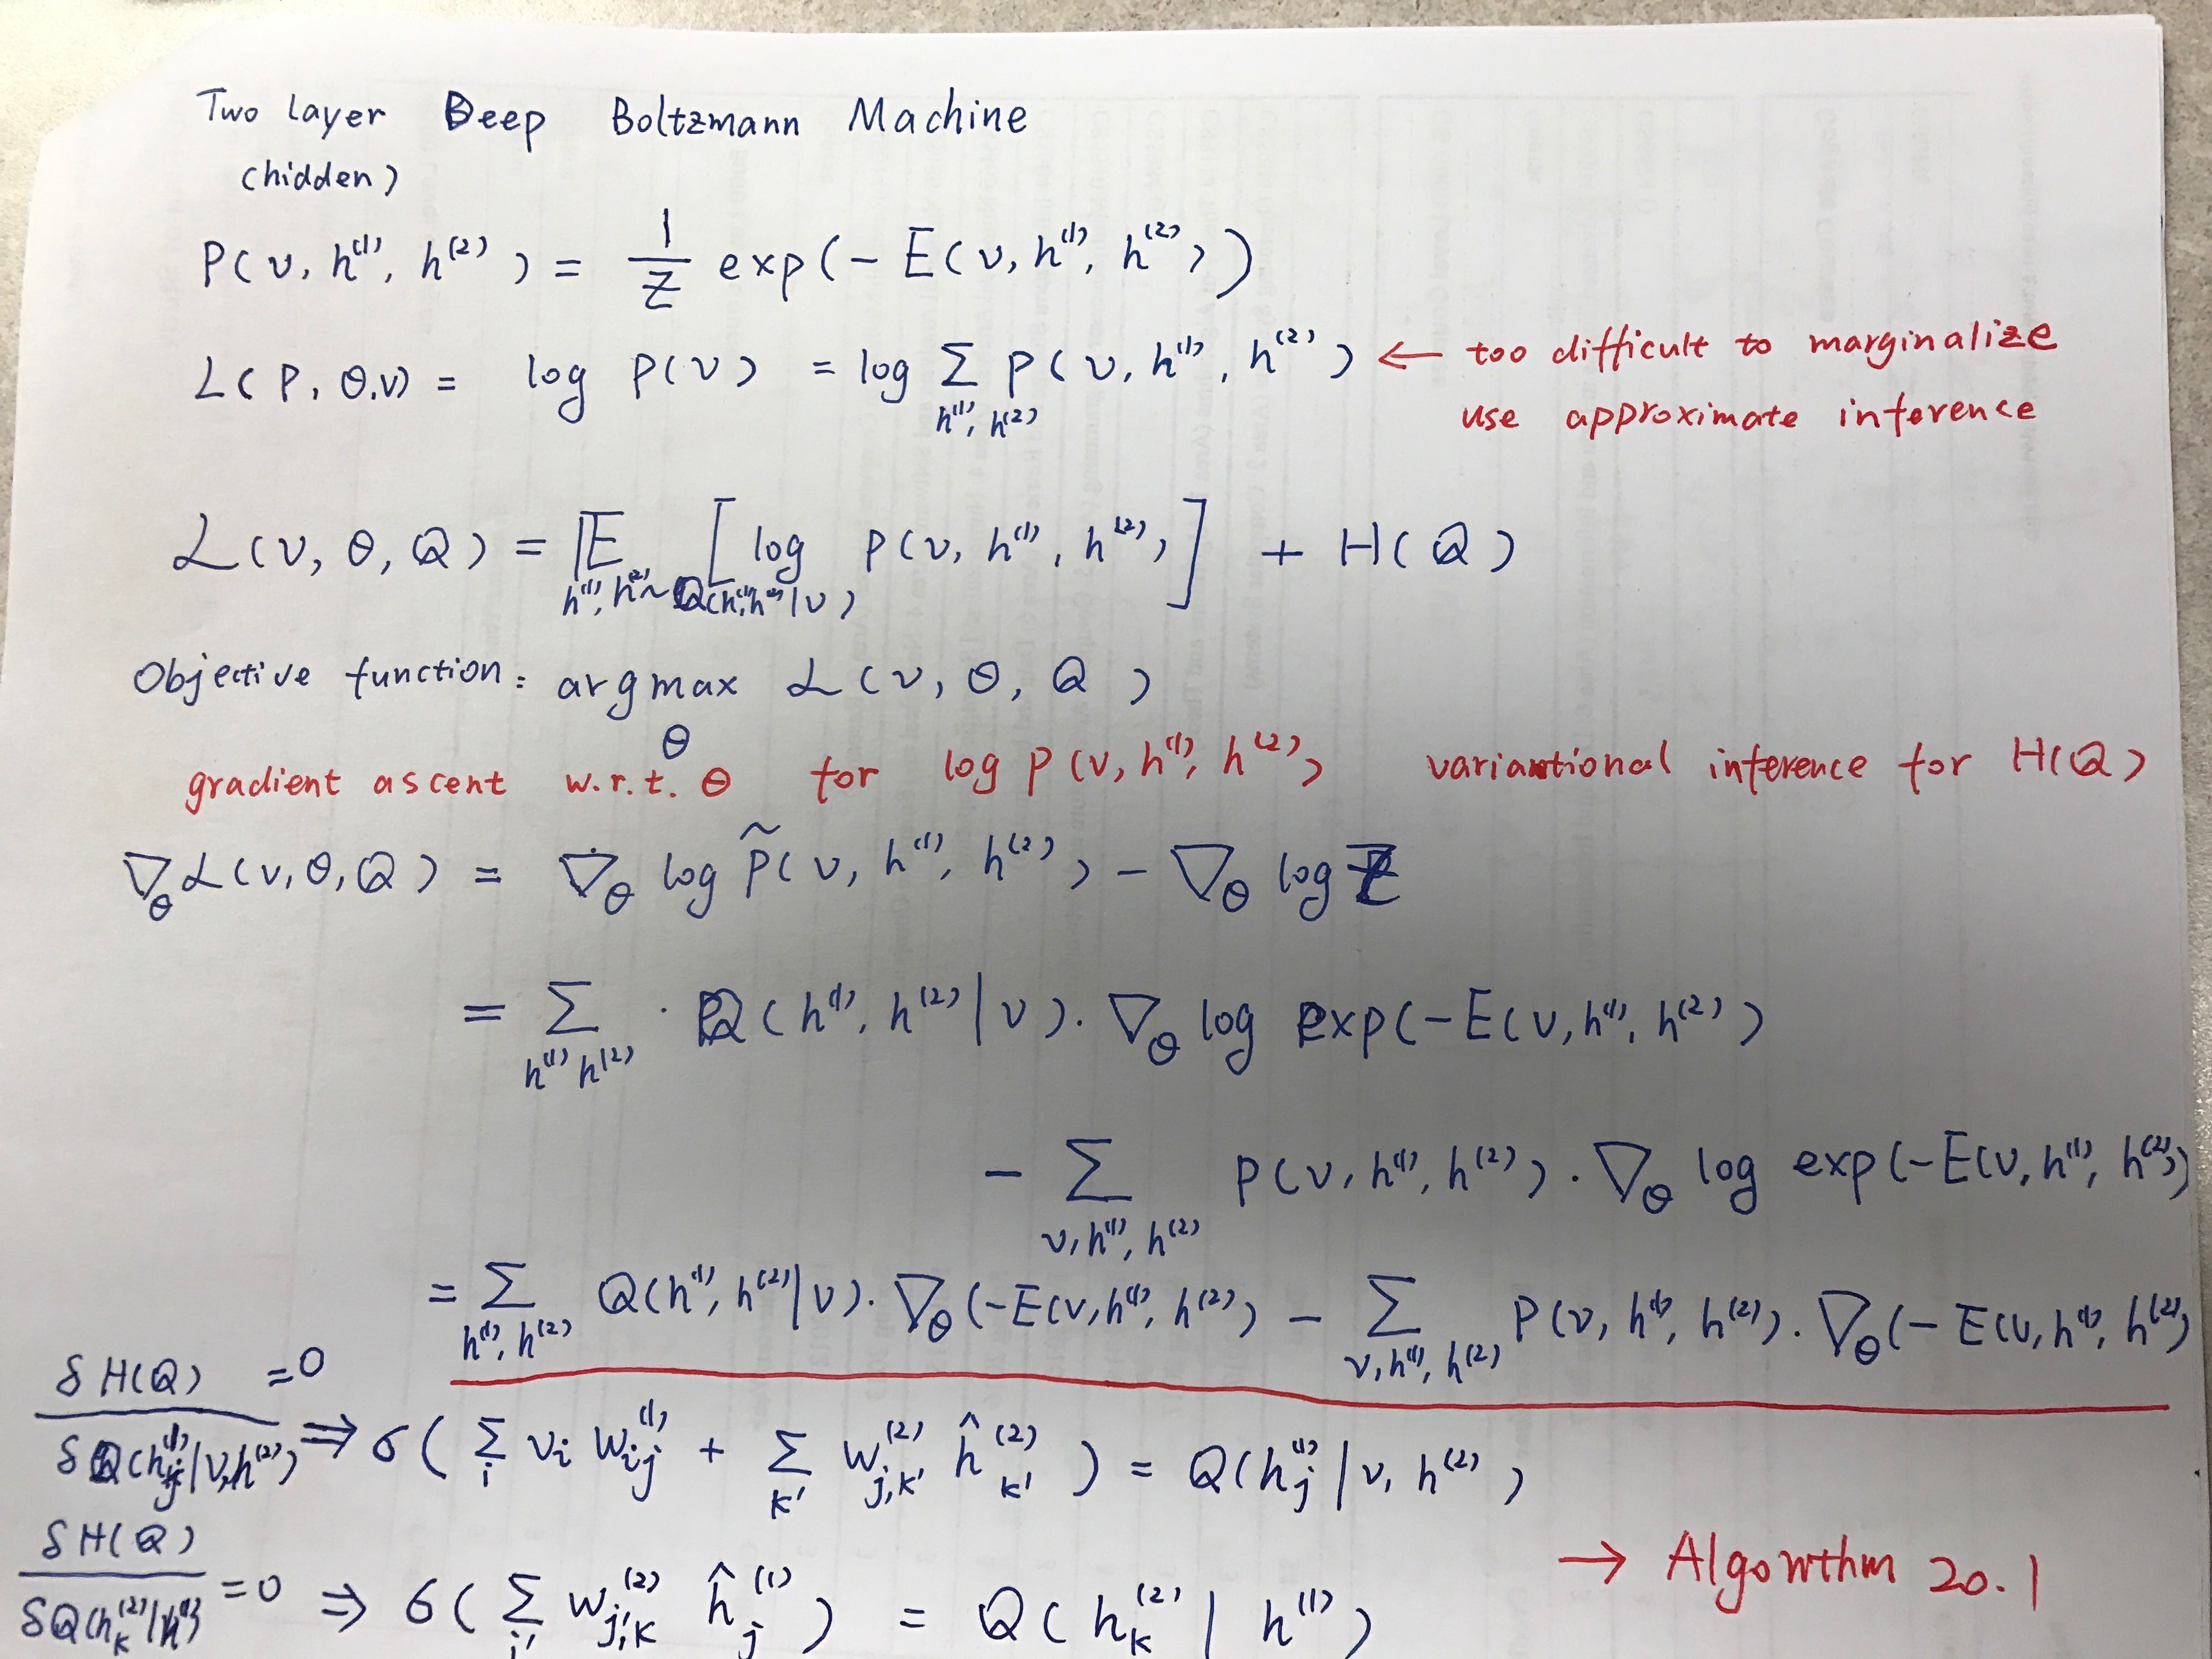 Two layer Deep Boltzmann Machine
(hidden)
P(v, h⁽¹⁾, h⁽²⁾) = 1/Z exp(- E(v, h⁽¹⁾, h⁽²⁾))
L(P, θ, v) = log P(v) = log Σ_{h⁽¹⁾, h⁽²⁾} P(v, h⁽¹⁾, h⁽²⁾) ← too difficult to marginalize
use approximate inference
ℒ(v, θ, Q) = 𝔼_{h⁽¹⁾, h⁽²⁾ ~ Q(h⁽¹⁾, h⁽²⁾|v)} [log P(v, h⁽¹⁾, h⁽²⁾)] + H(Q)
Objective function: argmax_θ ℒ(v, θ, Q)
gradient ascent w.r.t. θ for log P(v, h⁽¹⁾, h⁽²⁾) variantional inference for H(Q)
∇_θ ℒ(v, θ, Q) = ∇_θ log P̃(v, h⁽¹⁾, h⁽²⁾) - ∇_θ log Z
= Σ_{h⁽¹⁾ h⁽²⁾} · Q(h⁽¹⁾, h⁽²⁾|v) · ∇_θ log exp(-E(v, h⁽¹⁾, h⁽²⁾)
- Σ_{v, h⁽¹⁾, h⁽²⁾} P(v, h⁽¹⁾, h⁽²⁾) · ∇_θ log exp(-E(v, h⁽¹⁾, h⁽²⁾))
= Σ_{h⁽¹⁾, h⁽²⁾} Q(h⁽¹⁾, h⁽²⁾|v) · ∇_θ(-E(v, h⁽¹⁾, h⁽²⁾) - Σ_{v, h⁽¹⁾, h⁽²⁾} P(v, h⁽¹⁾, h⁽²⁾) · ∇_θ(- E(v, h⁽¹⁾, h⁽²⁾)
δH(Q)/δQ(h_j⁽¹⁾|v, h⁽²⁾) = 0 ⇒ σ(Σ_i v_i W_{ij}⁽¹⁾ + Σ_{k'} W_{j,k'}⁽²⁾ ĥ_{k'}⁽²⁾) = Q(h_j⁽¹⁾ | v, h⁽²⁾)
δH(Q)/δQ(h_k⁽²⁾|h⁽¹⁾) = 0 ⇒ σ(Σ_{j'} W_{j',k}⁽²⁾ ĥ_j⁽¹⁾) = Q(h_k⁽²⁾ | h⁽¹⁾)
→ Algorithm 20.1